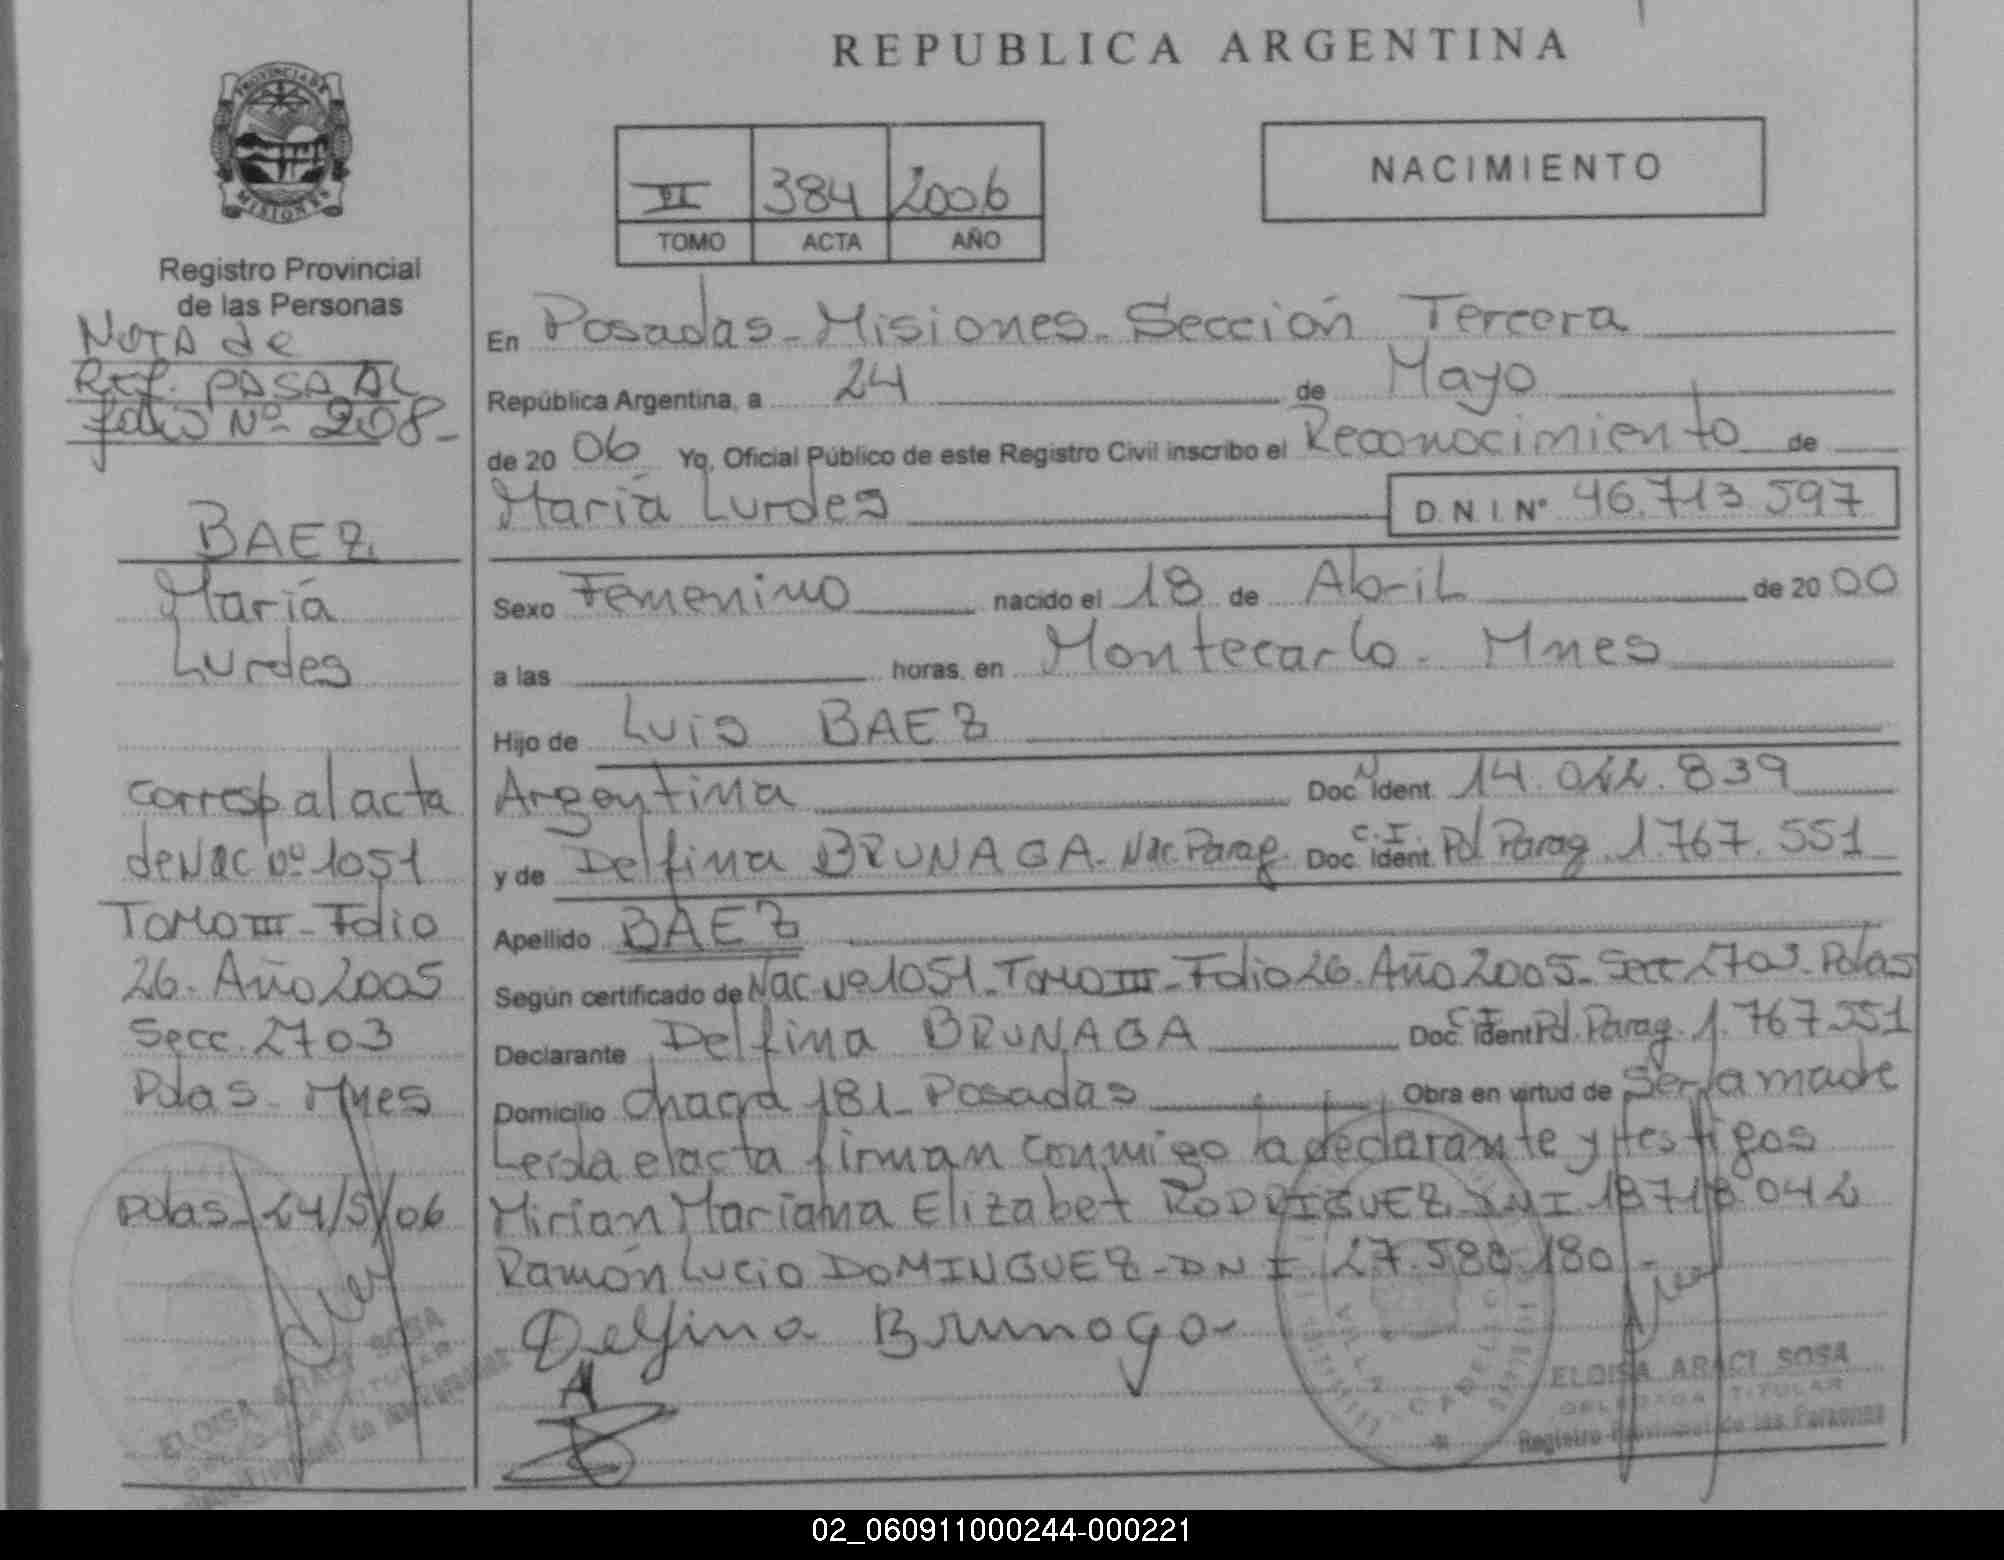 REPUBLICA ARGENTINA
PROVINCIA DE
MISIONES
Registro Provincial
de las Personas
NOTA de
REF. PASA AL
folio Nº 208-
BAEZ
María
Lurdes
corresp al acta
de Nac Nº 1051
TOMO III - Folio
26. Año 2005
Secc. 2703
Pdas - Mnes
Pdas 24/5/06
ELOISA ARACI SOSA
VI 384 2006
TOMO ACTA AÑO
NACIMIENTO
En Posadas - Misiones - Sección Tercera
República Argentina, a 24 de Mayo
de 20 06 Yo, Oficial Público de este Registro Civil inscribo el Reconocimiento de
María Lurdes D.N.I. Nº 46.713.597
Sexo Femenino nacido el 18 de Abril de 20 00
a las horas, en Montecarlo - Mnes
Hijo de Luis BAEZ
Argentina Doc. Ident. 14.022.839
y de Delfina BRUNAGA - Nac. Parag. C.I. Doc. Ident. Pol Parag. 1.767.551
Apellido BAEZ
Según certificado de Nac Nº 1051 - TOMO III - Folio 26. Año 2005 - Secc 2703 - Pdas
Declarante Delfina BRUNAGA C.I. Doc. Ident. Pol. Parag. 1.767.551
Domicilio chacra 181 - Posadas Obra en virtud de Ser la madre
Leída el acta firman conmigo la declarante y testigos
Mirian Mariana Elizabet RODRIGUEZ DNI 18.718.042
Ramón Lucio DOMINGUEZ - DNI 27.588.180 -
Delfina Brunaga
ELOISA ARACI SOSA
DELEGADA TITULAR
Registro Provincial de las Personas
02_060911000244-000221